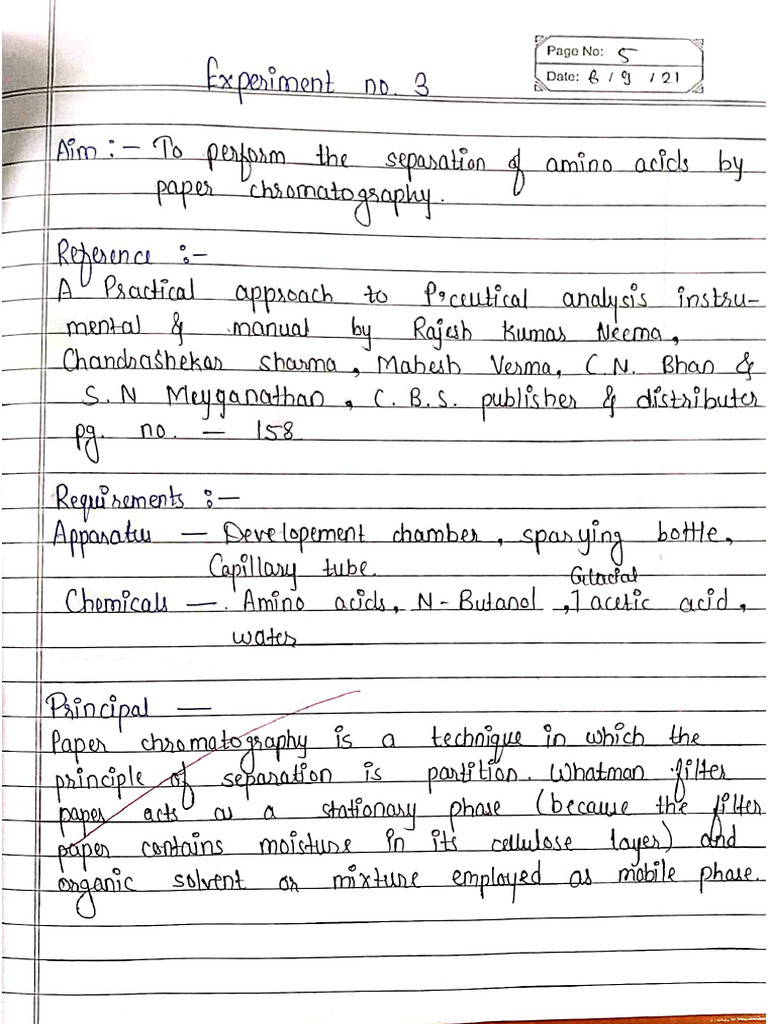 Page No: 5
Date: 6 / 9 / 21
Experiment no. 3
Aim :- To perform the separation of amino acids by
paper chromatography.
Reference :-
A Practical approach to P.ceutical analysis instru-
mental & manual by Rajesh Kumar Neema,
Chandrashekar Sharma, Mahesh Verma, C.N. Bhan &
S.N Meyganathan, C.B.S. publisher & distributer
pg. no. - 158
Requirements :-
Apparatus - Developement chamber, sparying bottle,
Capillary tube.
Glacial
Chemicals - Amino acids, N-Butanol, acetic acid,
water
Principal -
Paper chromatography is a technique in which the
principle of separation is partition. Whatman filter
paper acts as a stationary phase (because the filter
paper contains moisture in its cellulose layer) and
organic solvent or mixture employed as mobile phase.